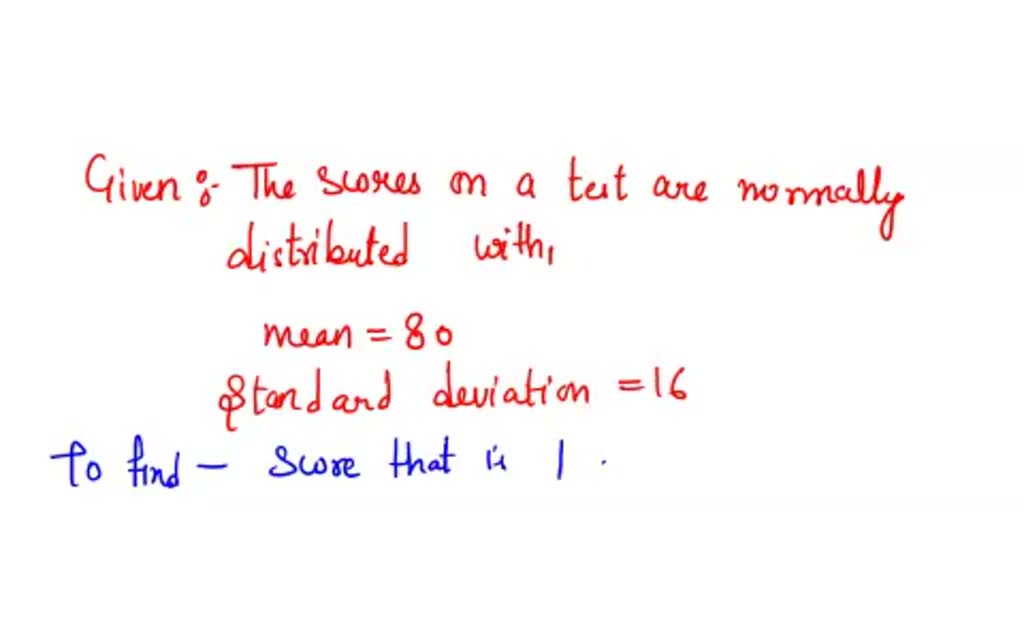 Given :- The scores on a test are normally
distributed with,
mean = 80
Standard deviation = 16
To find - Score that is 1 .